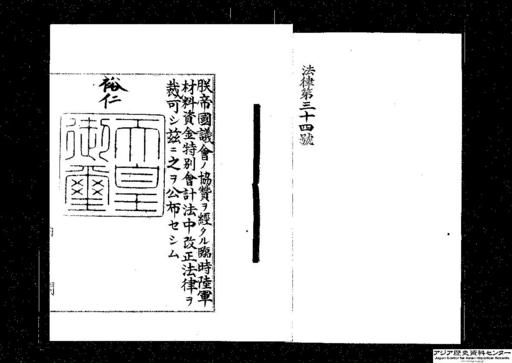 法律第三十四號
朕帝國議會ノ協賛ヲ經タル臨時陸軍
材料資金特別會計法中改正法律ヲ
裁可シ茲ニ之ヲ公布セシム
裕仁
天皇
御璽
アジア歴史資料センター
Japan Center for Asian Historical Records